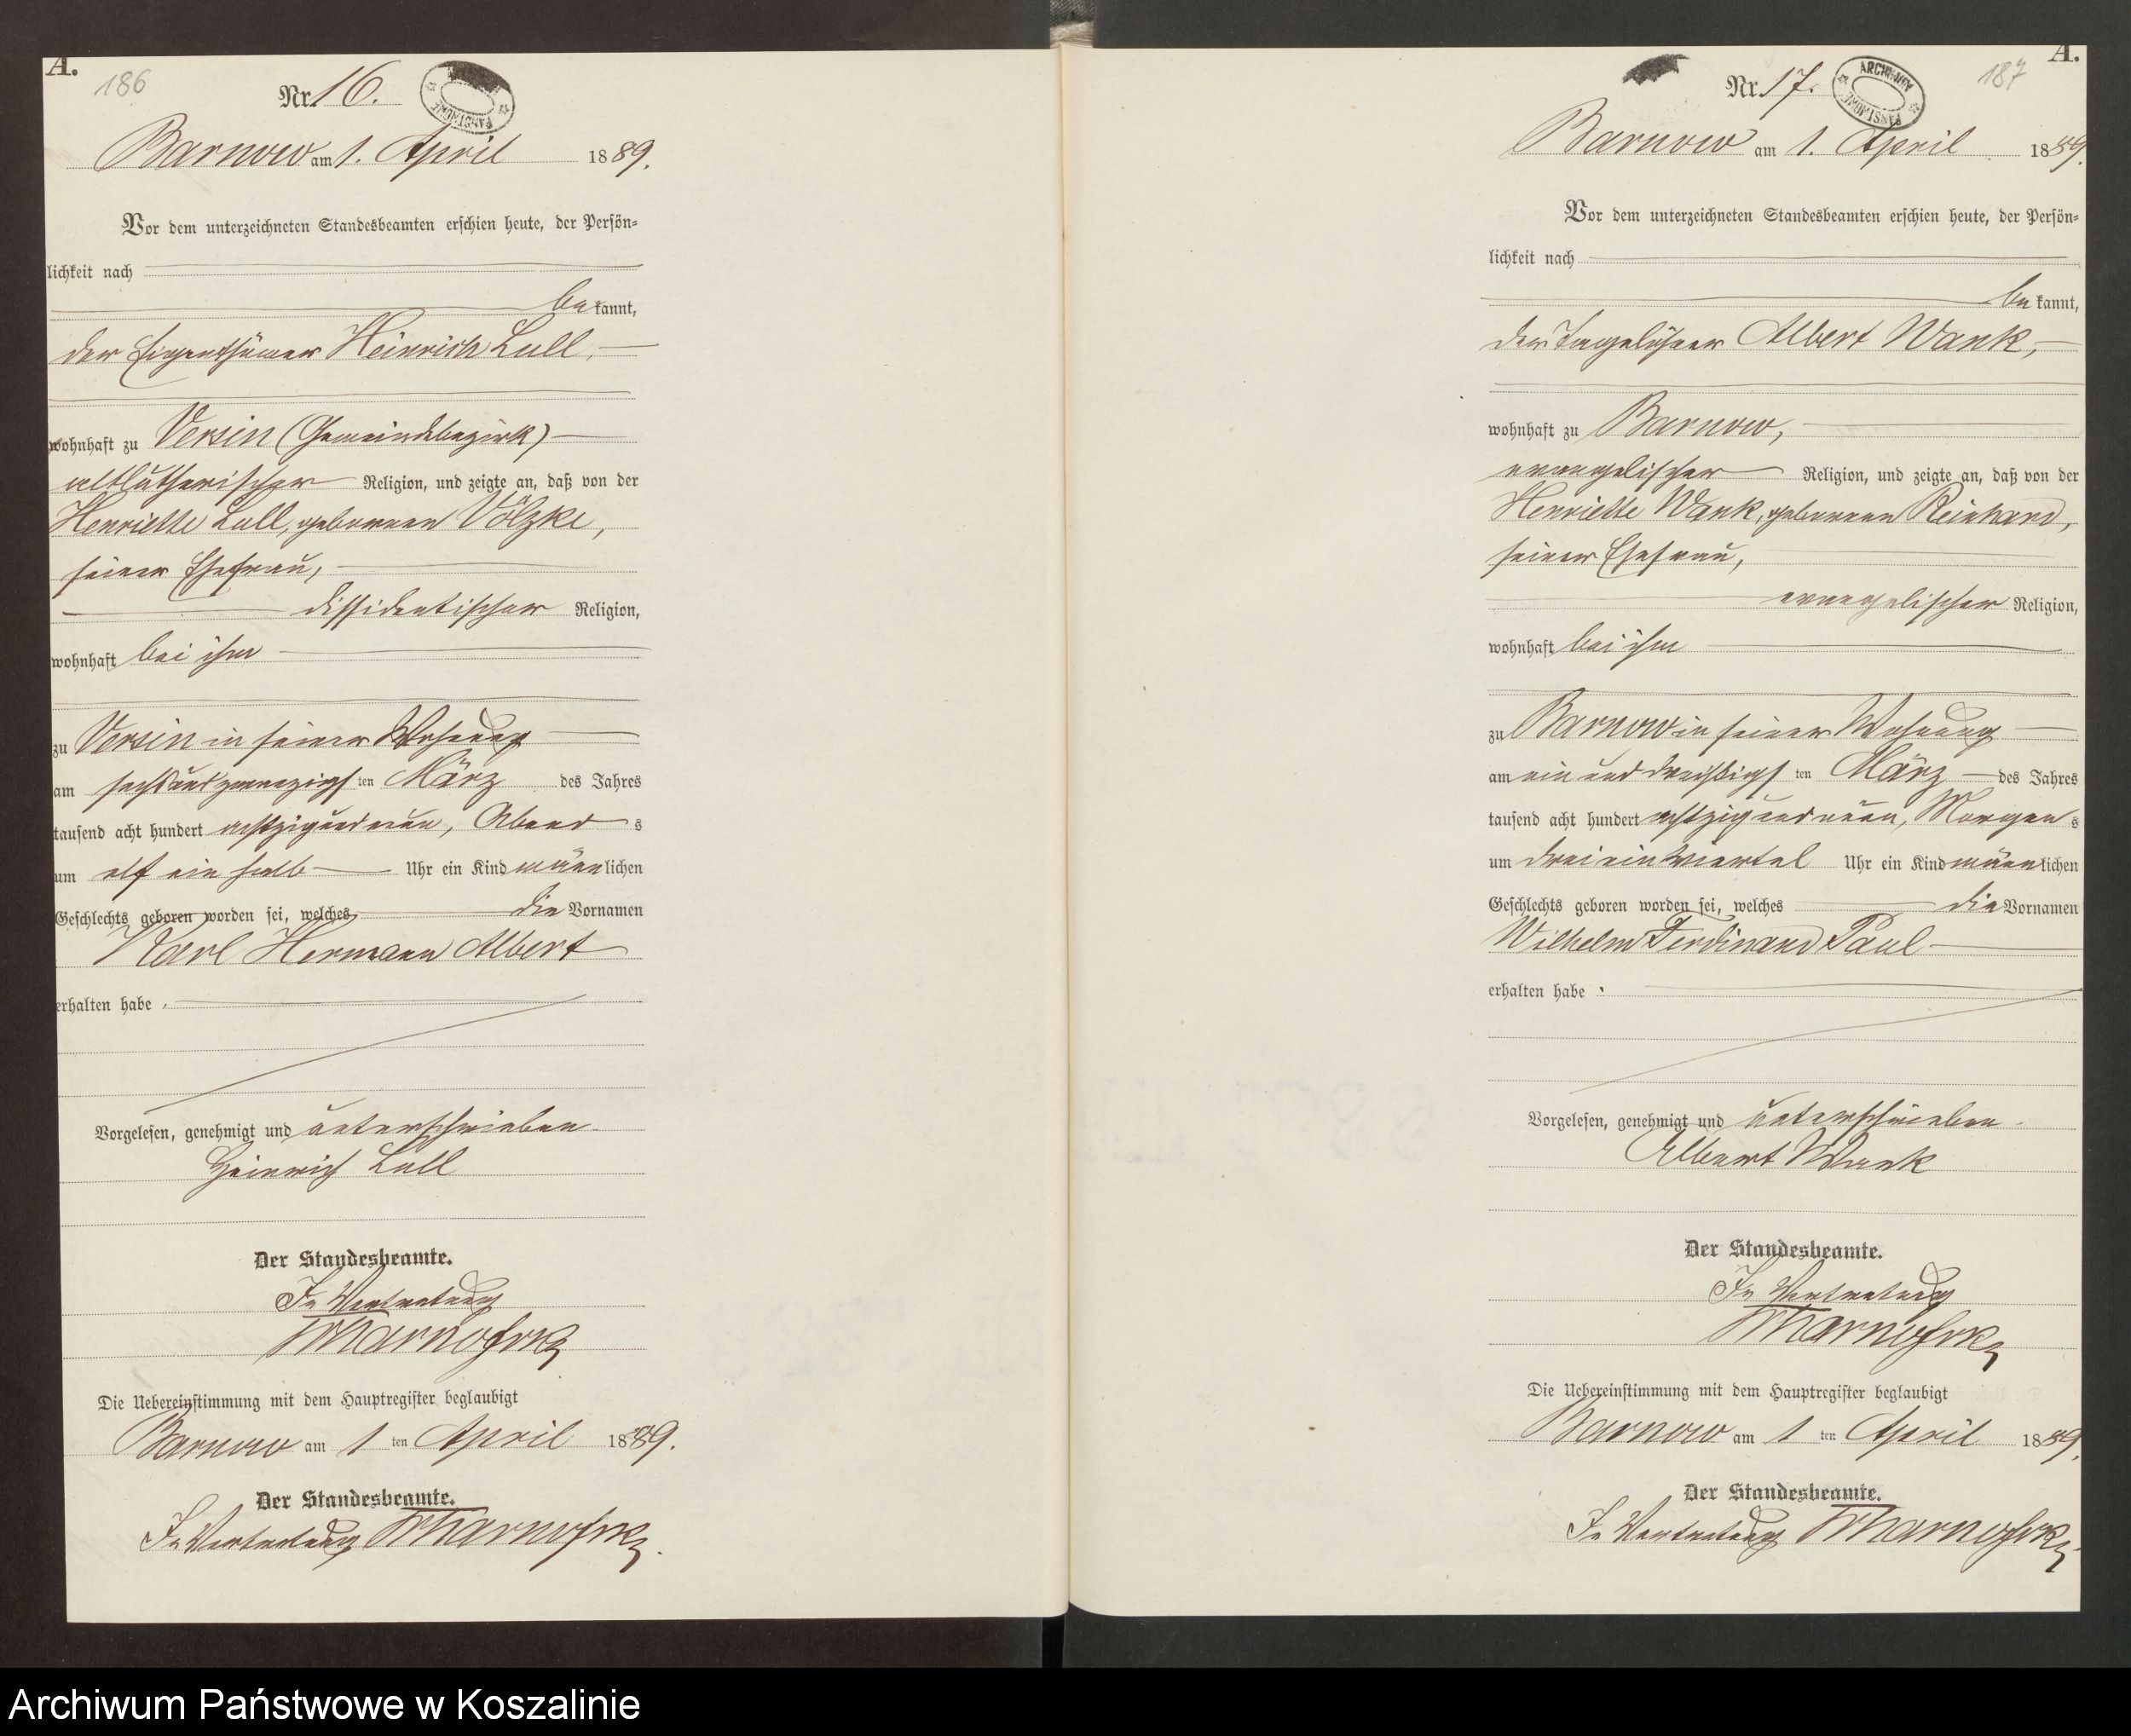 A.
186
Nr. 16.
Barnow am 1. April 1889.
Vor dem unterzeichneten Standesbeamten erschien heute, der Persön-
lichkeit nach
be kannt,
der Eigenthümer Heinrich Lull,
wohnhaft zu Versin (Gemeindebezirk)
altlutherischer Religion, und zeigte an, daß von der
Henriette Lull, geborenen Völzke,
seiner Ehefrau,
dissidentischer Religion,
wohnhaft bei ihm
zu Versin in seiner Wohnung
am sechsundzwanzigsten März des Jahres
tausend acht hundert achtzig und neun, Abends
um elf ein halb Uhr ein Kind männlichen
Geschlechts geboren worden sei, welches die Vornamen
Karl Hermann Albert
erhalten habe.
Vorgelesen, genehmigt und unterschrieben.
Heinrich Lull
Der Standesbeamte.
In Vertretung
Die Uebereinstimmung mit dem Hauptregister beglaubigt
Barnow am 1 ten April 1889.
Der Standesbeamte.
In Vertretung
A.
187
Nr. 17.
ARCHIWUM PAŃSTWOWE
Barnow am 1. April 1889.
Vor dem unterzeichneten Standesbeamten erschien heute, der Persön-
lichkeit nach
be kannt,
der Tagelöhner Albert Wank,
wohnhaft zu Barnow,
evangelischer Religion, und zeigte an, daß von der
Henriette Wank, geborenen Reinhard,
seiner Ehefrau,
evangelischer Religion,
wohnhaft bei ihm
zu Barnow in seiner Wohnung
am ein und dreißigsten März des Jahres
tausend acht hundert achtzig und neun, Morgens
um drei ein viertel Uhr ein Kind männlichen
Geschlechts geboren worden sei, welches die Vornamen
Wilhelm Ferdinand Paul
erhalten habe.
Vorgelesen, genehmigt und unterschrieben.
Albert Wank
Der Standesbeamte.
In Vertretung
Die Uebereinstimmung mit dem Hauptregister beglaubigt
Barnow am 1 ten April 1889.
Der Standesbeamte.
In Vertretung
Archiwum Państwowe w Koszalinie